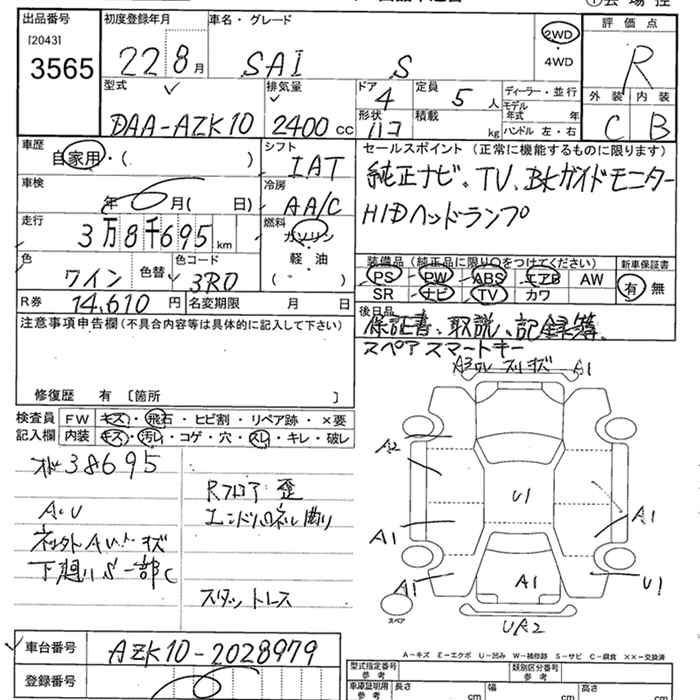 出品番号 初度登録年月 車名・グレード 評価点
[2043]
3565 22 8月 SAI S 2WD・4WD R
型式 排気量 ドア 定員 ディーラー・並行 外装 内装
DAA-AZK10 2400cc 4 5人 モデル年式 年
形状 ハコ 積載 kg ハンドル 左・右 C B
車歴 シフト セールスポイント (正常に機能するものに限ります)
自家用・( ) IAT 純正ナビ。TV、BKガイドモニター
車検 冷房 HIDヘッドランプ
年 月( 日) AA/C
走行 燃料
3万8千695km ガソリン 装備品(純正品に限り○をつけてください) 新車保証書
色 色替 色コード 軽・油 PS PW ABS エアB AW 有 無
ワイン 3R0 ( ) SR ナビ TV カワ
R券 14,610円 名変期限 月 日 後日品
注意事項申告欄(不具合内容等は具体的に記入して下さい) 保証書、取説、記録簿
スペアスマートキー
A3 スリキズ A1
修復歴 有 〔箇所 〕
検査員 FW キズ・飛石・ヒビ割・リペア跡・×要
記入欄 内装 キズ・汚レ・コゲ・穴・スレ・キレ・破レ
38695
A2
Rフロア歪
U1
A・U
A1 A1
下廻りS一部C
A1 A1 U1
スペア
車台番号 AZK10-2028979
A-キズ E-エクボ U-凹み W-補修跡 S-サビ C-腐食 ××-交換済
登録番号
型式指定番号 参考 類別区分番号 参考
車庫証明用 参考 長さ cm 幅 cm 高さ cm